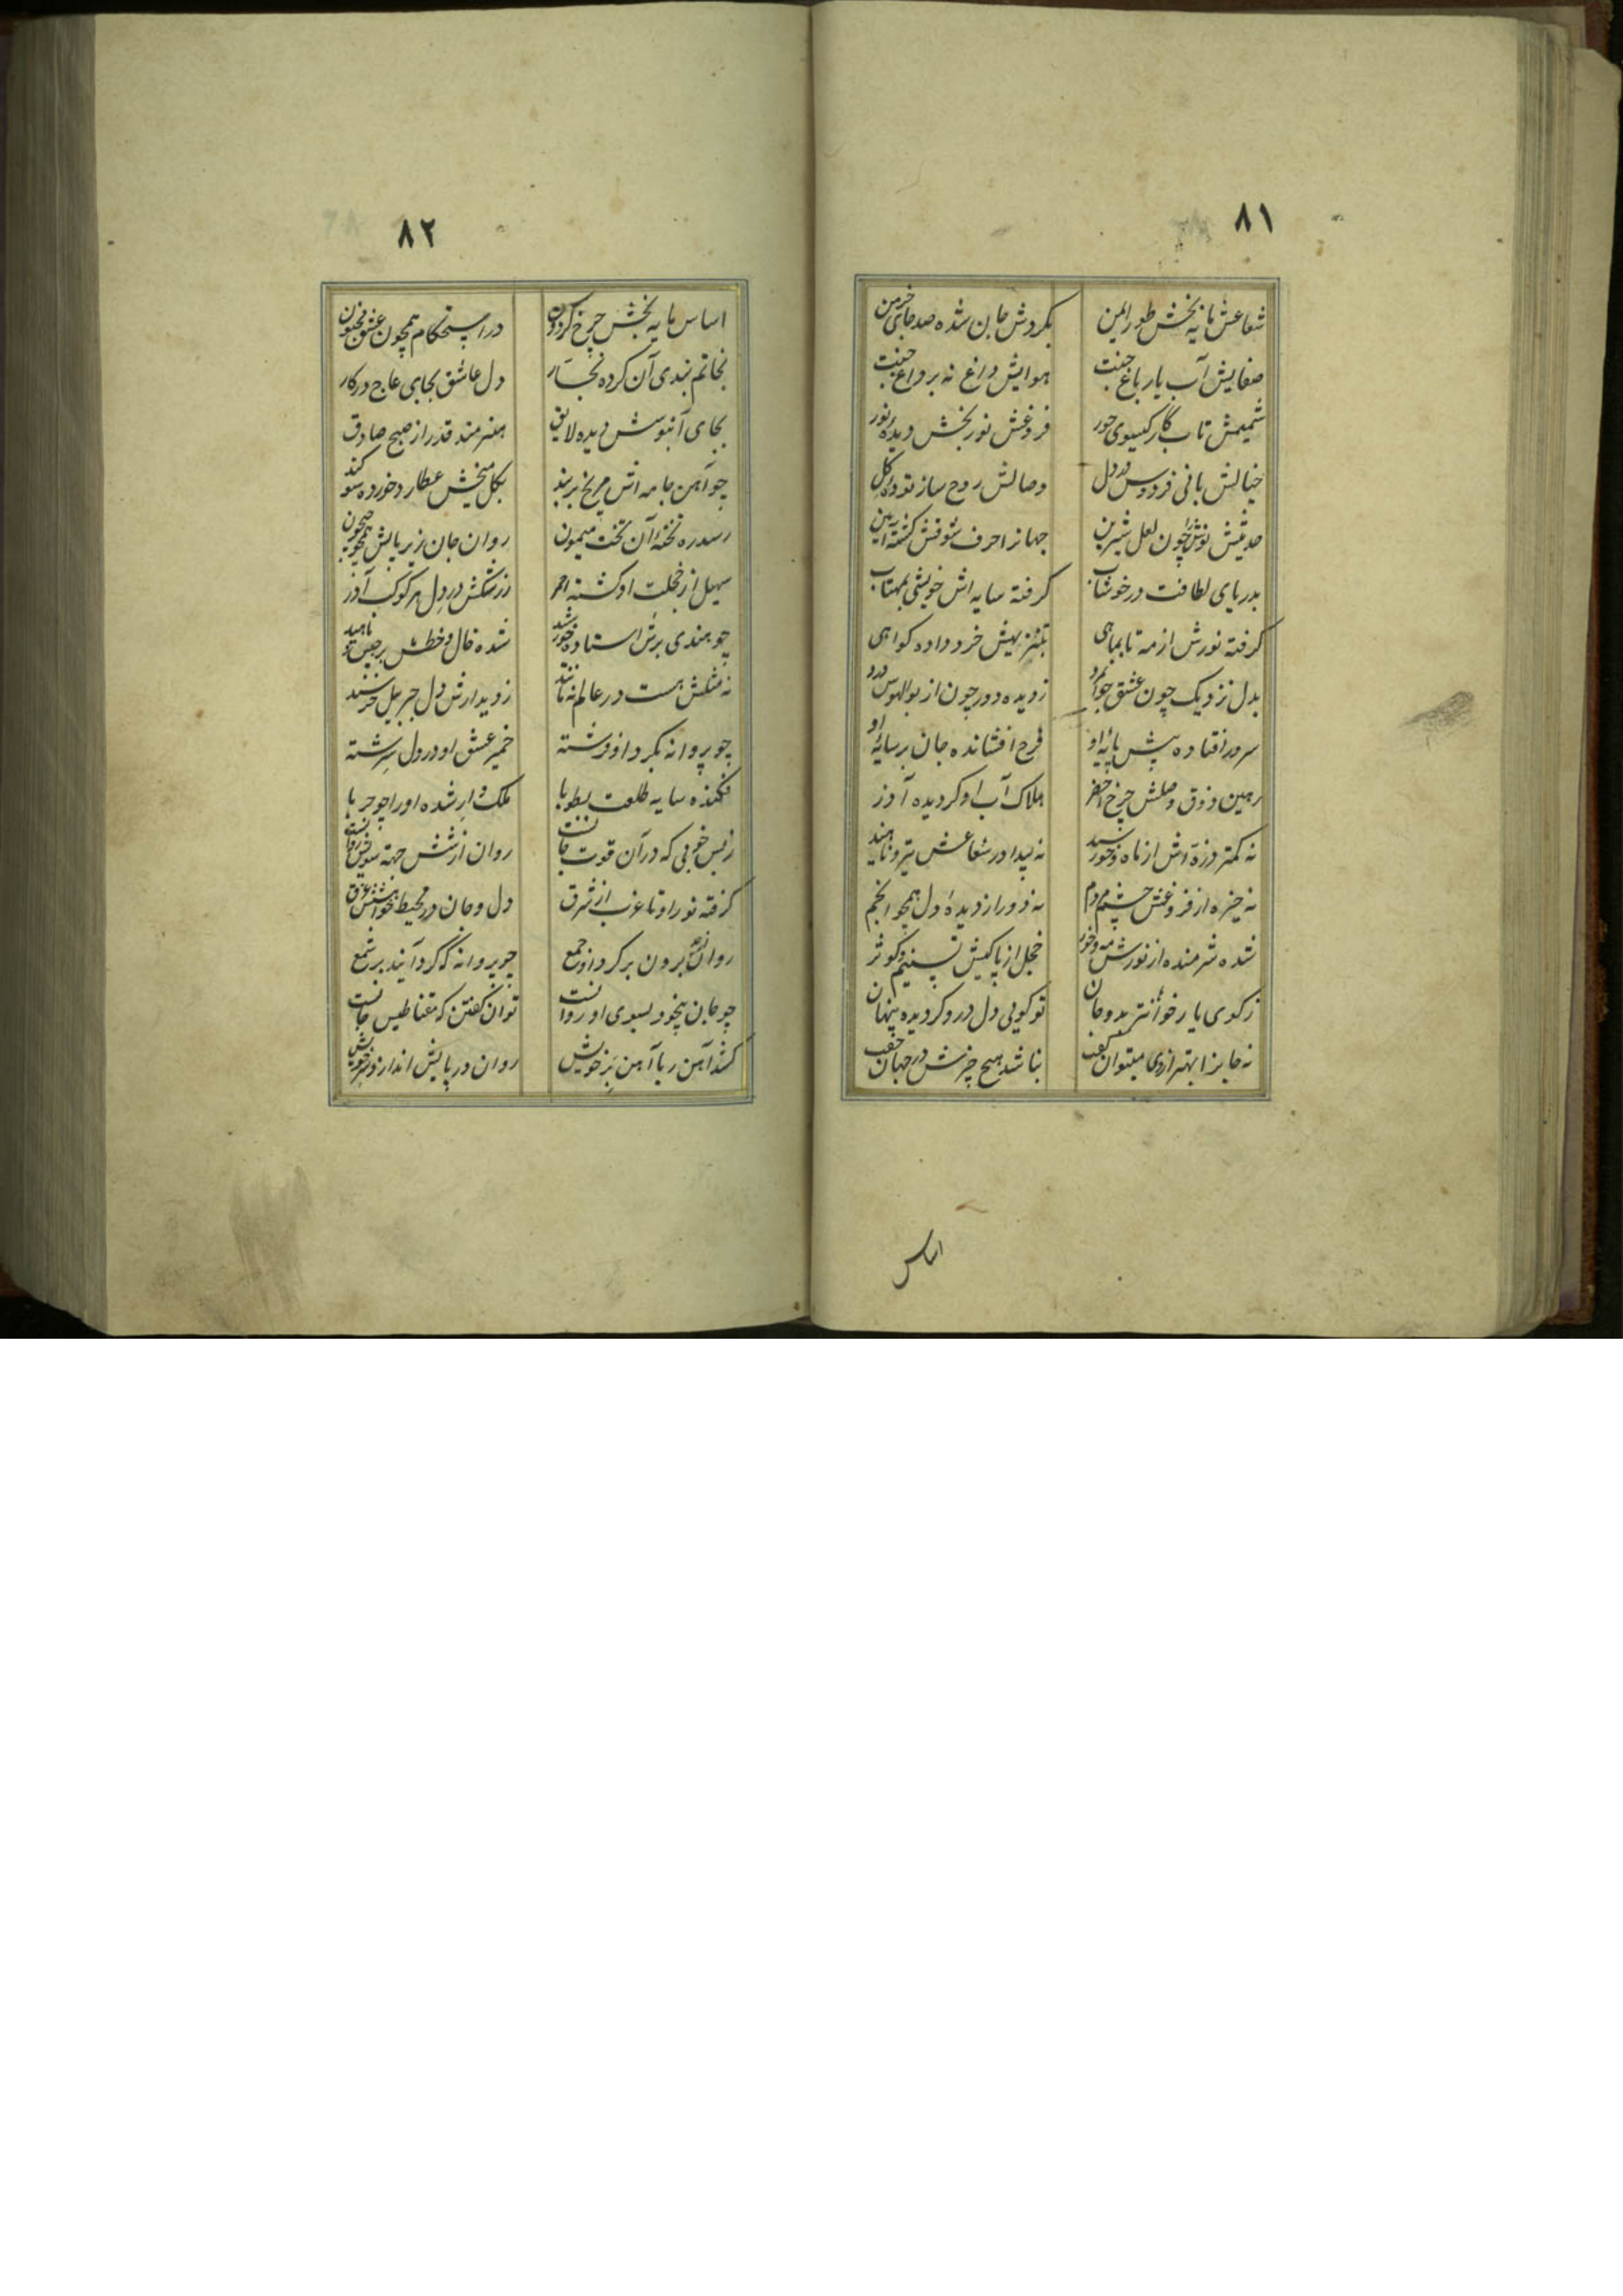 ٨١
شعاعش مایه بخش طور ایمن بگردش جان شده صد جای خرمن
صفایش آب یار باغ جنت هوایش داغ نه بر داغ جنت
شمیمش تاب کار کیسوی حور فروغش نور بخش دیدهٔ نور
خیالش بانی فردوس در دل وصالش روح ساز توده کل
حدیثش نوش چون لعل شیرین جهانرا حرف شوقش کشته آیین
بدریای لطافت در خوشاب کرفته سایه اش خویشی بمهتاب
کرفته نورش از مه تا بماهی بتنزیهش خرد داده کواهی
بدل نزدیک چون عشق جوانمرد ز دیده دور چون از بوالهوس درد
سرور افتاده پیش پایهٔ او فرح افشانده جان بر سایهٔ او
رهین ذوق وصلش چرخ اخضر هلاک آب او کردیده آذر
نه کمتر ذره اش از ماه و خورشید نه پیدا در شعاعش تیر و ناهید
نه خیره از فروغش چشم مردم نه دور از دیدهٔ دل همچو انجم
شده شرمنده از نورش مه و خور خجل از پاکیش تسنیم و کوثر
ز کوی یار خوانتر بدو جان تو کویی دل درو کردیده پنهان
نه جایز بهتر از وی میتوان کفت نباشد هیچ چیزش در جهان جفت
اساس
٨٢
اساس مایه بخش چرخ کردون در استحکام همچون عشق مجنون
بخاتم بندی آن کرده نجار دل عاشق بجای عاج در کار
بجای آبنوسش دیده لایق هنرمند قدر از صبح صادق
چو آهن جامه اش مریخ بر بند بکل میخش عطارد خورده سوکند
رسد ره تختهٔ آن تخت میمون روان جان زیر پایش همچو جیحون
سهیل از خجلت او کشته احمر ز رشکش در دل هر کوکب آذر
چو هندی برش استاده خورشید شده خال و خطش برجیس و ناهید
نه مثلش هست در عالم نه مانند ز دیدارش دل جبریل خرسند
چو پروانه بکرد او فرشته خمیر عشق او در دل سرشته
فکنده سایه طلعت بطوبا ملک وار شده او را چو حربا
ز بس خوبی که در آن قوت جانست روان از شش جهة سویش روانست
کرفته نور او تا غرب از شرق دل و جان در محیط خواهشش غرق
روان برون بر کرد او جمع چو پروانه که کرد آیند بر شمع
چو جان بیخود بسوی او روانست توان کفتن که مقناطیس جانست
کشد آهن ربا آهن بر خویش روان در پایش اندازد سر خویش